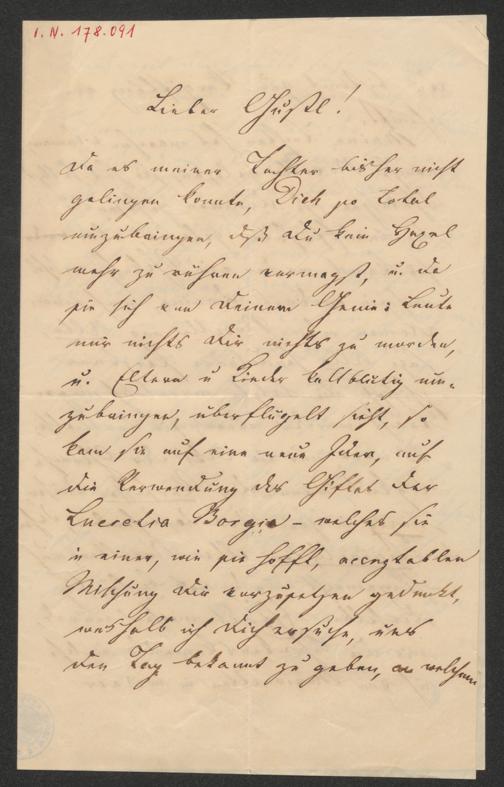 I.N. 178.091
Lieber Gustl!
Da es meiner Tochter bisher nicht
gelingen konnte, Dich so total
umzubringen, daß Du kein Haxel
mehr zu rühren vermagst, u. da
sie sich von Deinem Genie: Leute
mir nichts Dir nichts zu morden,
u. Eltern u Kinder kaltblutig um-
zubringen, uberflügelt sieht, so
kam sie auf eine neue Idee, auf
die Verwendung des Giftes der
Lucretia Borgia – welches sie
in einer, wie sie hofft, acceptablen
Mischung Dir vorzusetzen gedenkt,
weshalb ich Dich ersuche, uns
den Tag bekannt zu geben, an welchem